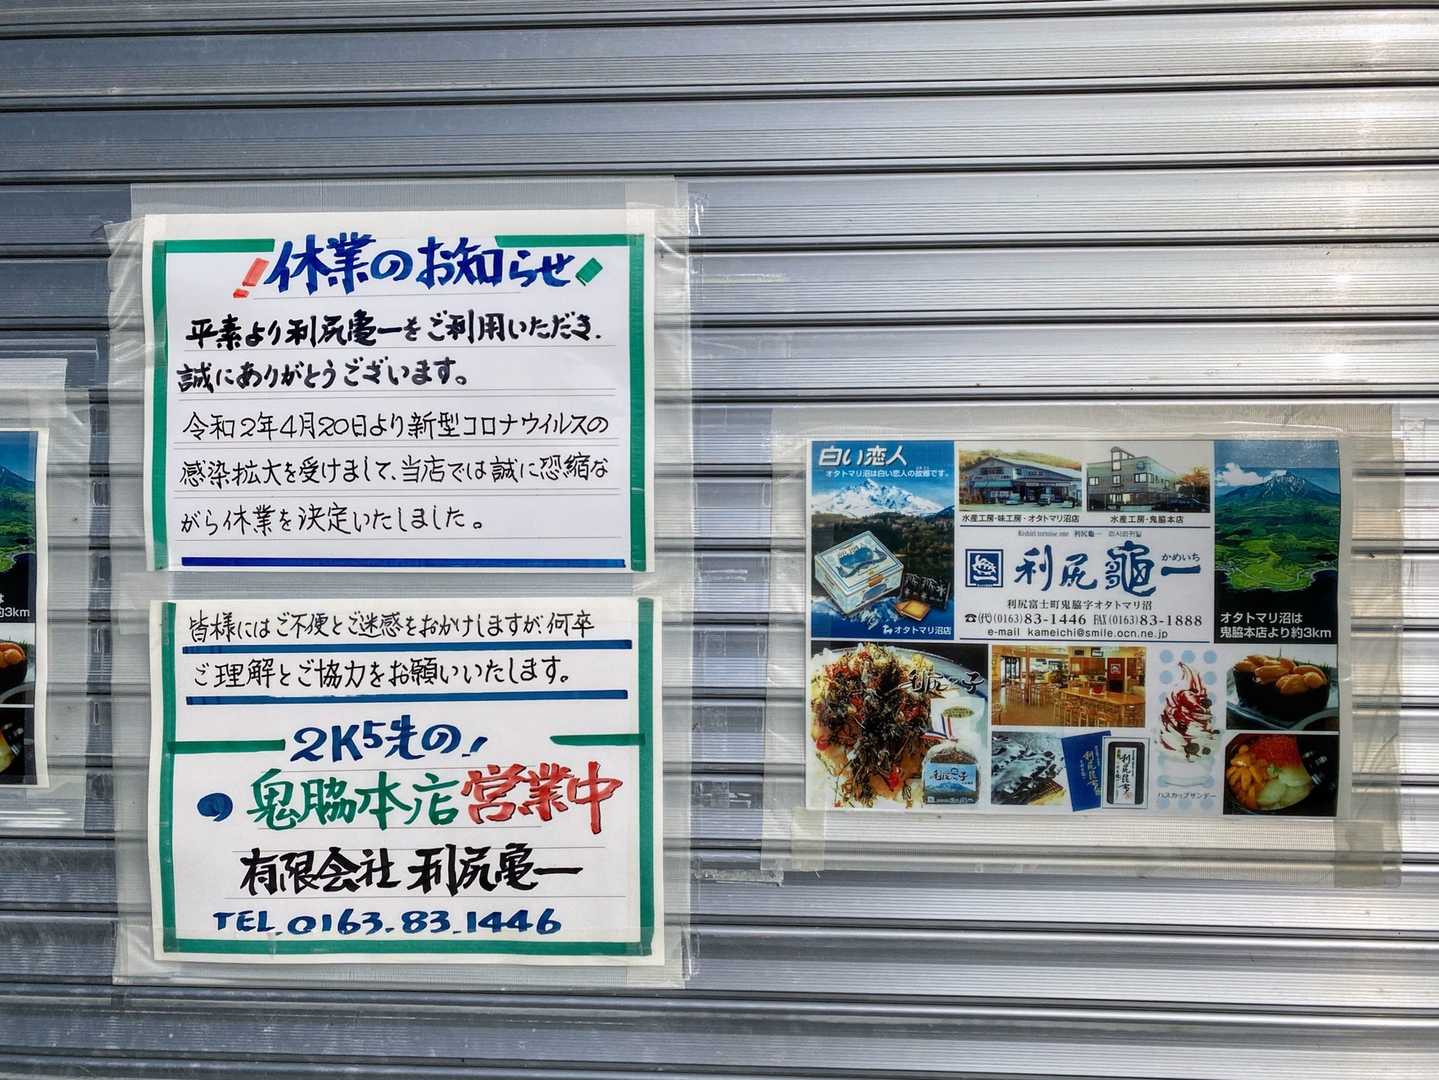 休業のお知らせ
平素より利尻亀一をご利用いただき.
誠にありがとうございます。
令和2年4月20日より新型コロナウイルスの
感染拡大を受けまして、当店では誠に恐縮な
がら休業を決定いたしました。
皆様にはご不便とご迷惑をおかけしますが、何卒
ご理解とご協力をお願いいたします。
2K5先の!
鬼脇本店営業中
有限会社 利尻亀一
TEL.0163.83.1446
約3km
白い恋人
オタトマリ沼は白い恋人の故郷です。
オタトマリ沼店
水産工房・味工房・オタトマリ沼店
水産工房・鬼脇本店
利尻亀一
利尻龜一
かめいち
利尻富士町鬼脇字オタトマリ沼
☎(代)(0163)83-1446 FAX(0163)83-1888
e-mail kameichi@smile.ocn.ne.jp
オタトマリ沼は
鬼脇本店より約3km
利尻っ子
利尻っ子
利尻昆布
利尻昆布
ハスカップサンデー